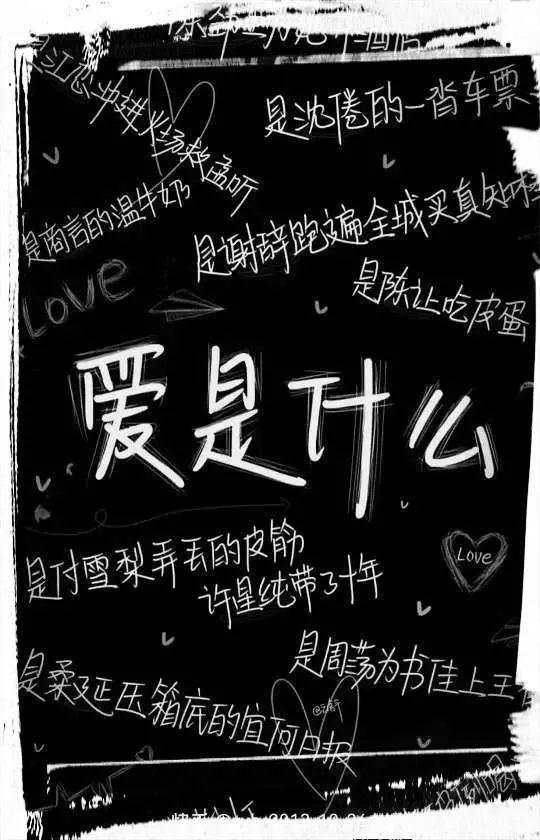 是沈倦的一沓车票
江忍冲进火场救孟听
是商言的温牛奶
是谢辞跑遍全城买真知
是陈让吃皮蛋
Love
爱是什么
是付雪梨弄丢的皮筋
许星纯带了十年
Love
是周荡为书佳上王者
是柔延压箱底的宜何日报